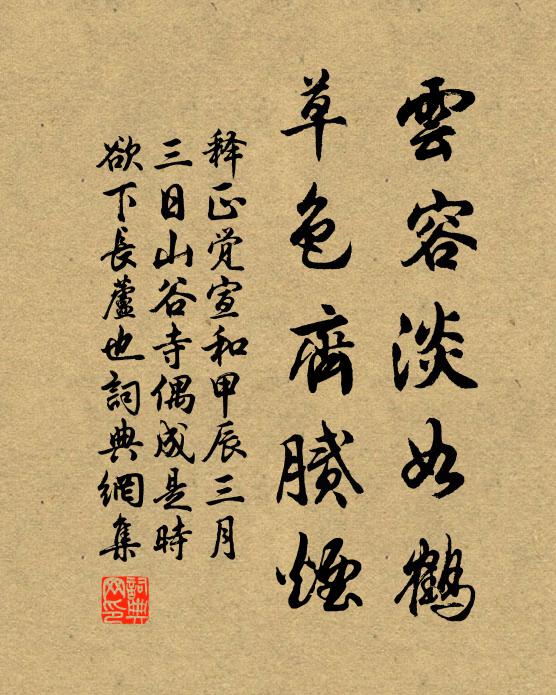 雲容淡如鶴
草色齊膩煙
释正觉宣和甲辰三月
三日山谷寺偶成是時
欲下長蘆也詞典網集
詞典
网印